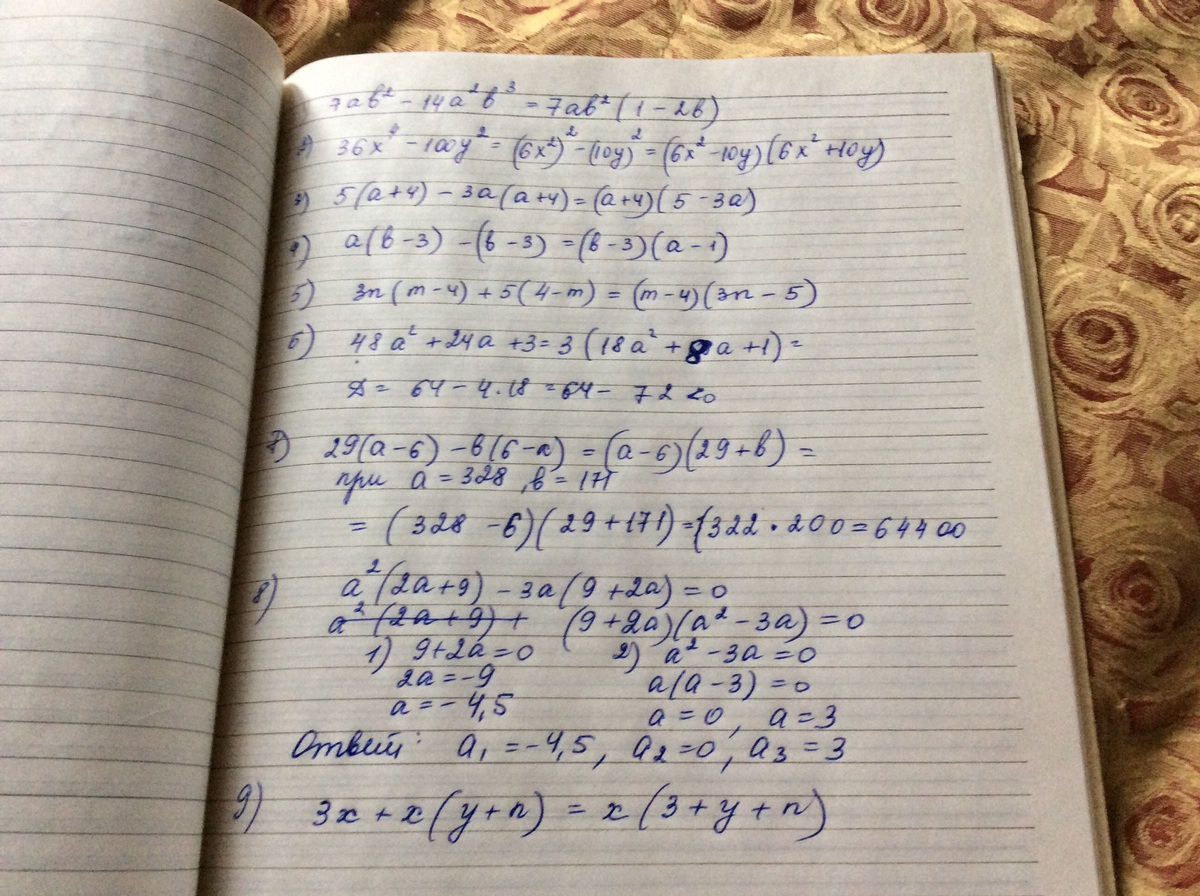 7ab² - 14a²b³ = 7ab²(1 - 2b)
2) 36x⁴ - 100y² = (6x²)² - (10y)² = (6x² - 10y)(6x² + 10y)
3) 5(a+4) - 3a(a+4) = (a+4)(5 - 3a)
4) a(b - 3) - (b - 3) = (b - 3)(a - 1)
5) 3n(m - 4) + 5(4 - m) = (m - 4)(3n - 5)
6) 48a² + 24a + 3 = 3(18a² + 8a + 1) =
D = 64 - 4·18 = 64 - 72 <0
7) 29(a - 6) - b(6 - a) = (a - 6)(29 + b) =
при a = 328, b = 171
= (328 - 6)(29 + 171) = {322 · 200 = 64400
8) a²(2a+9) - 3a(9+2a) = 0
a²(2a+9) + (9+2a)(a² - 3a) = 0
1) 9+2a = 0 2) a² - 3a = 0
2a = -9 a(a - 3) = 0
a = -4,5 a = 0, a = 3
Ответ: a₁ = -4,5, a₂ = 0, a₃ = 3
9) 3x + x(y + n) = x(3 + y + n)